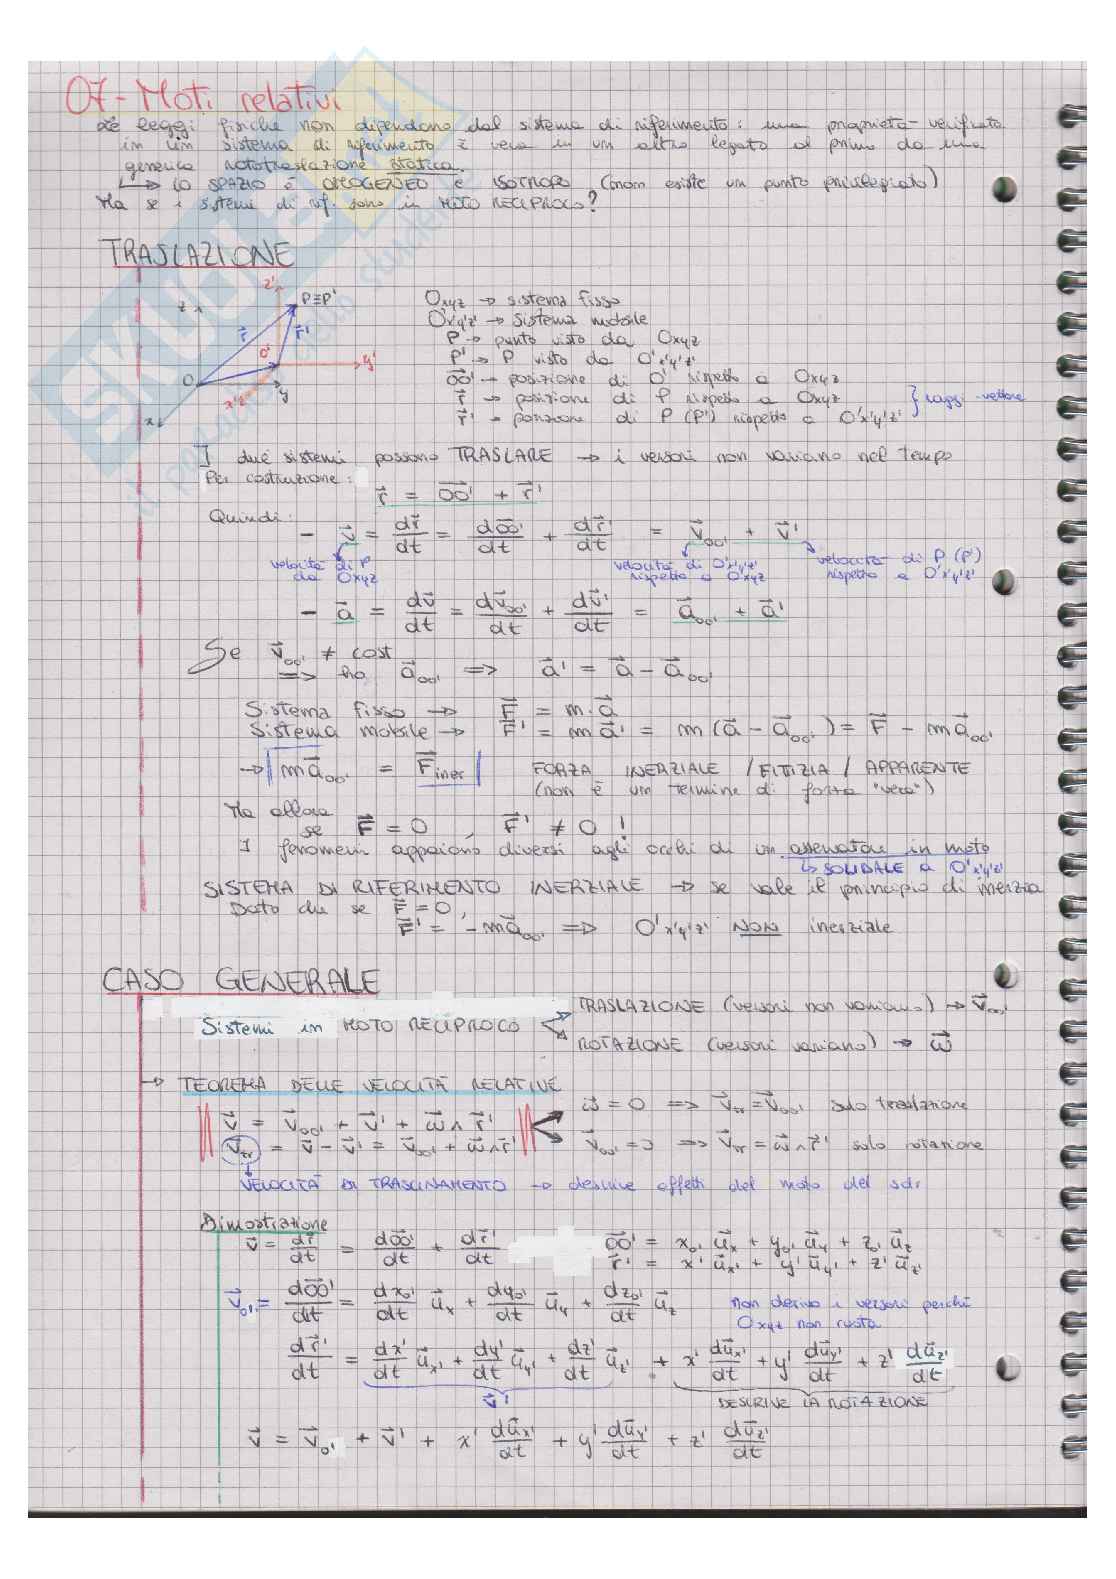 07 - Moti relativi
Le leggi fisiche non dipendono dal sistema di riferimento: una proprietà verificata
in un sistema di riferimento è vera in un altro legato al primo da una
generica rototraslazione statica.
↳ lo SPAZIO è OMOGENEO e ISOTROPO (non esiste un punto privilegiato)
Ma se i sistemi di rif. sono in MOTO RECIPROCO?
TRASLAZIONE
z z' P≡P' r⃗ r⃗' O O' y' y x' x
Oxyz → sistema fisso
O'x'y'z' → sistema mobile
P → punto visto da Oxyz
P' → P visto da O'x'y'z'
OO'⃗ → posizione di O' rispetto a Oxyz
r⃗ → posizione di P rispetto a Oxyz
r⃗' → posizione di P (P') rispetto a O'x'y'z'
} raggi-vettore
I due sistemi possono TRASLARE → i versori non variano nel tempo
Per costruzione:
r⃗ = OO'⃗ + r⃗'
Quindi:
- v⃗ = dr⃗/dt = dOO'⃗/dt + dr⃗'/dt = v⃗oo' + v⃗'
velocità di P da Oxyz
velocità di O'x'y'z' rispetto a Oxyz
velocità di P (P') rispetto a O'x'y'z'
- a⃗ = dv⃗/dt = dv⃗oo'/dt + dv⃗'/dt = a⃗oo' + a⃗'
Se v⃗oo' ≠ cost
=> ho a⃗oo' => a⃗' = a⃗ - a⃗oo'
Sistema fisso → F⃗ = m·a⃗
Sistema mobile → F⃗' = ma⃗' = m(a⃗ - a⃗oo') = F⃗ - ma⃗oo'
→ | ma⃗oo' = F⃗iner | FORZA INERZIALE / FITTIZIA / APPARENTE
(non è un termine di forza "vera")
Ma allora
se F⃗ = 0, F⃗' ≠ 0 !
I fenomeni appaiono diversi agli occhi di un osservatore in moto
↳ SOLIDALE a O'x'y'z'
SISTEMA DI RIFERIMENTO INERZIALE → se vale il principio di inerzia
Dato che se F⃗ = 0,
F⃗' = -ma⃗oo' => O'x'y'z' NON inerziale
CASO GENERALE
Sistemi in MOTO RECIPROCO
TRASLAZIONE (versori non variano) → v⃗oo'
ROTAZIONE (versori variano) → ω⃗
→ TEOREMA DELLE VELOCITÀ RELATIVE
v⃗ = v⃗oo' + v⃗' + ω⃗∧r⃗'
v⃗tr = v⃗ - v⃗' = v⃗oo' + ω⃗∧r⃗'
ω⃗ = 0 => v⃗tr = v⃗oo' solo traslazione
v⃗oo' = 0 => v⃗tr = ω⃗∧r⃗' solo rotazione
VELOCITÀ DI TRASCINAMENTO → descrive effetti del moto del sdr
Dimostrazione
v⃗ = dr⃗/dt = dOO'⃗/dt + dr⃗'/dt
OO'⃗ = xo' u⃗x + yo' u⃗y + zo' u⃗z
r⃗' = x' u⃗x' + y' u⃗y' + z' u⃗z'
v⃗o' = dOO'⃗/dt = dxo'/dt u⃗x + dyo'/dt u⃗y + dzo'/dt u⃗z
non derivo i versori perché
Oxyz non ruota
dr⃗'/dt = dx'/dt u⃗x' + dy'/dt u⃗y' + dz'/dt u⃗z' + x' du⃗x'/dt + y' du⃗y'/dt + z' du⃗z'/dt
v⃗' DESCRIVE LA ROTAZIONE
v⃗ = v⃗o' + v⃗' + x' du⃗x'/dt + y' du⃗y'/dt + z' du⃗z'/dt